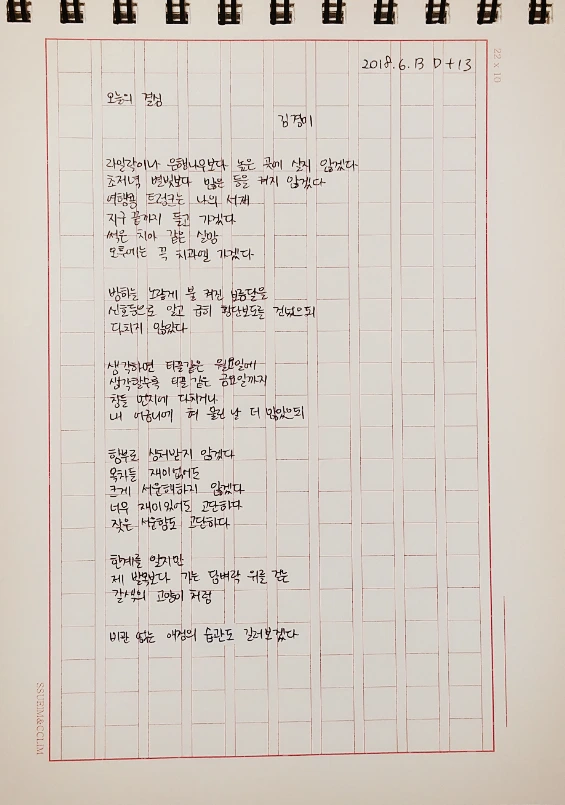 2018.6.13 D+13
22 x 10
오늘의 결심
김경미
라일락이나 은행나무보다 높은 곳에 살지 않겠다
초저녁 별빛보다 많은 등을 켜지 않겠다
여행용 트렁크는 나의 서재
지구 끝까지 들고 가겠다
썩은 치아 같은 실망
오후에는 꼭 치과엘 가겠다
밤하늘 노랗게 불 켜진 보름달을
신호등으로 알고 급히 횡단보도를 건넜으되
다치지 않았다
생각하면 티끌같은 월요일에
생각할수록 티끌 같은 금요일까지
창틀 먼지에 다치거나
내 어금니에 혀 물린 날 더 많았으되
함부로 상처받지 않겠다
목차들 재미없어도
크게 서운해하지 않겠다
너무 재미있어도 고단하다
잦은 서운함도 고단하다
한계를 알지만
제 발목보다 가는 담벼락 위를 걷는
갈색의 고양이 처럼
비관 없는 애정의 습관도 길러보겠다
SSUEIM&CCLIM